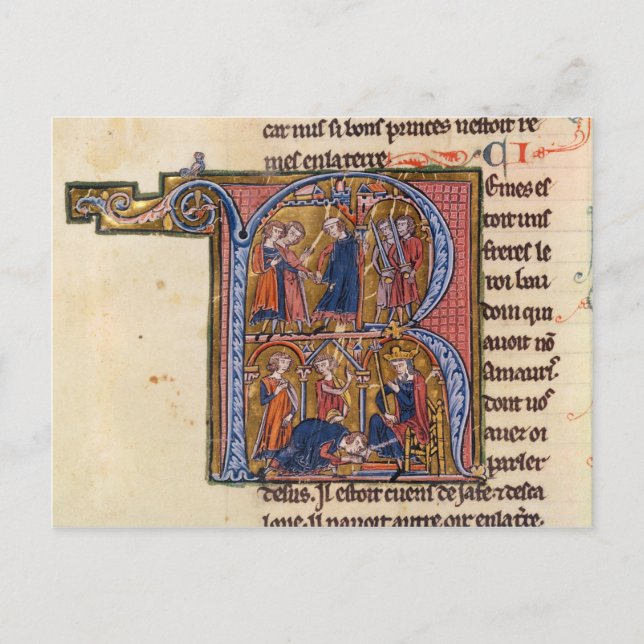 car nus si bons princes nestoit re
mes en la terre. CI
R
emes es
toit uns
freres le
roi bau
doin qui
auoit nō
Amauri.
dont uoˢ
auez oi
parler
desus. Il estoit cuens de Jafe ⁊ desca
lone. Il nauoit autre oir en la t̄re.